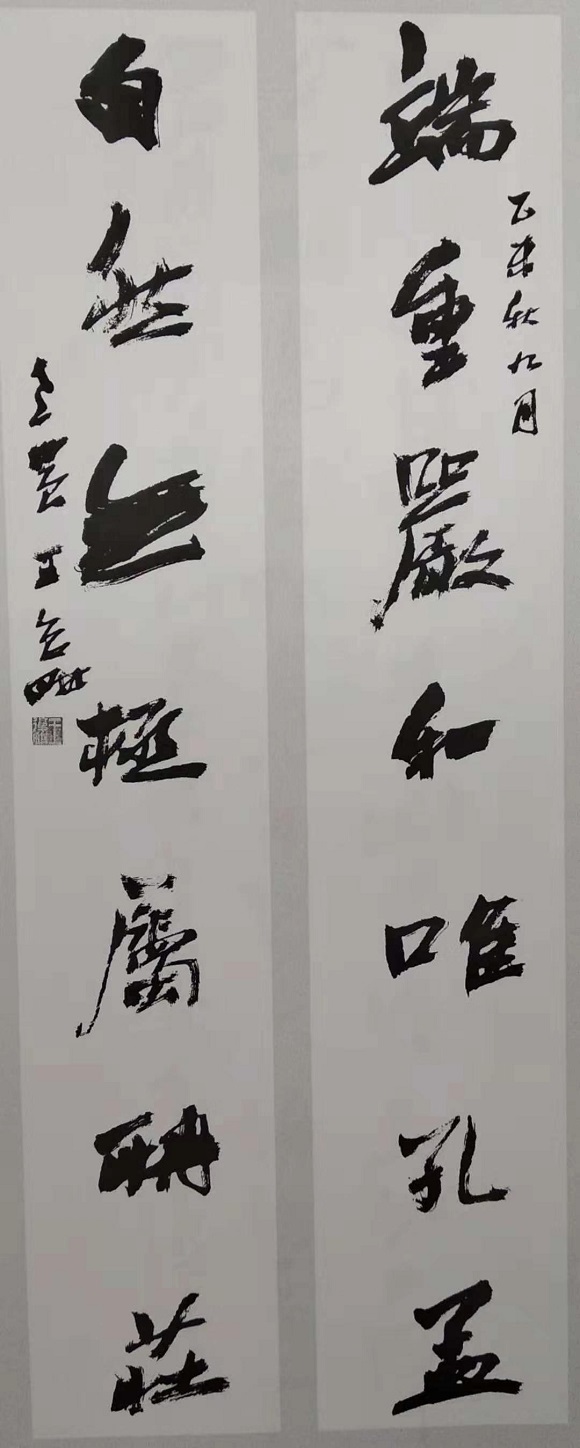 端重嚴和唯孔孟
乙未秋九月
自然無極屬聃莊